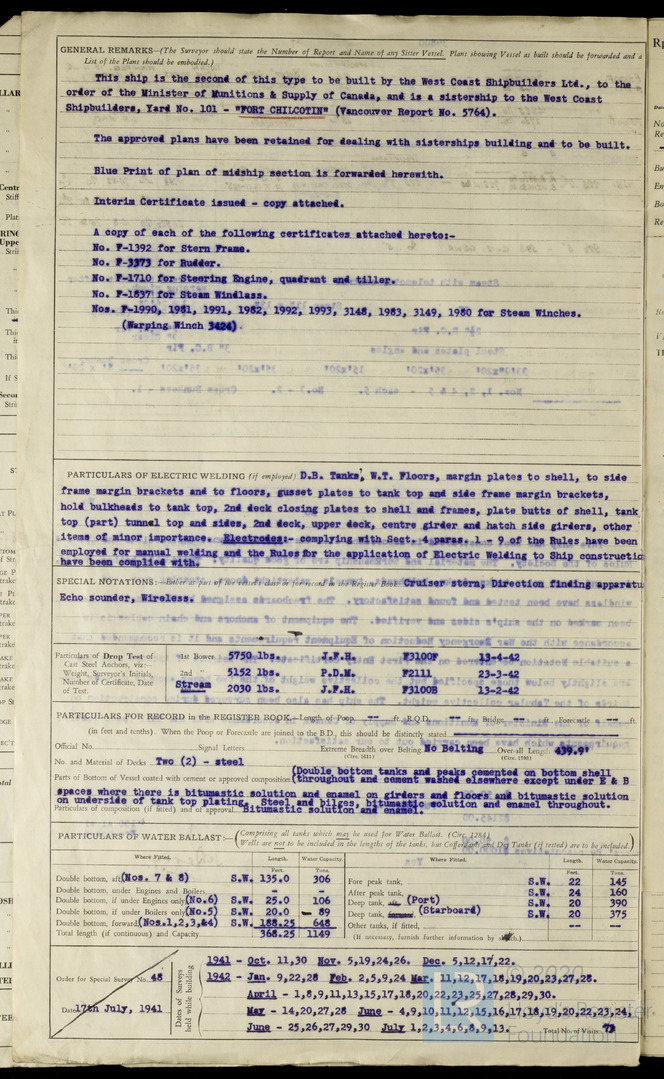 GENERAL REMARKS—(The Surveyor should state the Number of Report and Name of any Sister Vessel. Plans showing Vessel as built should be forwarded and a
List of the Plans should be embodied.)
This ship is the second of this type to be built by the West Coast Shipbuilders Ltd., to the
order of the Minister of Munitions & Supply of Canada, and is a sistership to the West Coast
Shipbuilders, Yard No. 101 - "FORT CHILCOTIN" (Vancouver Report No. 5764).
The approved plans have been retained for dealing with sisterships building and to be built.
Blue Print of plan of midship section is forwarded herewith.
Interim Certificate issued - copy attached.
A copy of each of the following certificates attached hereto:-
No. F-1392 for Stern Frame.
No. F-3373 for Rudder.
No. F-1710 for Steering Engine, quadrant and tiller.
No. F-1837 for Steam Windlass.
Nos. F-1990, 1981, 1991, 1982, 1992, 1993, 3148, 1983, 3149, 1980 for Steam Winches.
(Warping Winch 3424).
PARTICULARS OF ELECTRIC WELDING (if employed) D.B. Tanks, W.T. Floors, margin plates to shell, to side
frame margin brackets and to floors, gusset plates to tank top and side frame margin brackets,
hold bulkheads to tank top, 2nd deck closing plates to shell and frames, plate butts of shell, tank
top (part) tunnel top and sides, 2nd deck, upper deck, centre girder and hatch side girders, other
items of minor importance. Electrodes:- complying with Sect. 4 paras. 1 - 9 of the Rules have been
employed for manual welding and the Rules for the application of Electric Welding to Ship constructio
have been complied with.
SPECIAL NOTATIONS:— Either as part of the vessel's class or for record in the Register Book Cruiser stern, Direction finding apparatu
Echo sounder, Wireless.
Particulars of Drop Test of Cast Steel Anchors, viz:— Weight, Surveyor's Initials, Number of Certificate, Date of Test.
1st Bower 5750 lbs. J.F.H. F3100F 13-4-42
2nd " 5152 lbs. P.D.M. F2111 23-3-42
Stream 2030 lbs. J.F.H. F3100B 13-2-42
PARTICULARS FOR RECORD in the REGISTER BOOK.—Length of Poop -- ft. R.Q.D. -- ft. Bridge -- ft. Forecastle -- ft.
(in feet and tenths). When the Poop or Forecastle are joined to the B.D., this should be distinctly stated
Official No. Signal Letters Extreme Breadth over Belting No Belting Over-all Length 439.9'
(Circ. 1611) (Circ. 1703)
No. and Material of Decks Two (2) - steel
Parts of Bottom of Vessel coated with cement or approved composition (Double bottom tanks and peaks cemented on bottom shell
(throughout and cement washed elsewhere except under E & B
spaces where there is bitumastic solution and enamel on girders and floors and bitumastic solution
on underside of tank top plating. Steel and bilges, bitumastic solution and enamel throughout.
Particulars of composition (if fitted) and of approval Bitumastic solution and enamel.
PARTICULARS OF WATER BALLAST:—(Comprising all tanks which may be used for Water Ballast. (Circ. 1284).
Wells are not to be included in the lengths of the tanks, but Cofferdams and Dry Tanks (if tested) are to be included.)
Where Fitted. Length. Water Capacity. Where Fitted. Length. Water Capacity.
Feet. Tons. Feet. Tons.
Double bottom, aft (Nos. 7 & 8) S.W. 135.0 306
Double bottom, under Engines and Boilers - -
Double bottom, if under Engines only (No.6) S.W. 25.0 106
Double bottom, if under Boilers only (No.5) S.W. 20.0 89
Double bottom, forward (Nos.1,2,3,&4) S.W. 188.25 648
Total length (if continuous) and Capacity 368.25 1149
Fore peak tank, S.W. 22 145
After peak tank, S.W. 24 160
Deep tank, aft, (Port) S.W. 20 390
Deep tank, forward, (Starboard) S.W. 20 375
Other tanks, if fitted, -- --
(If necessary, furnish further information by sketch.)
Order for Special Survey No. 48
Date 17th July, 1941
Dates of Surveys held while building
1941 - Oct. 11,30 Nov. 5,19,24,26. Dec. 5,12,17,22.
1942 - Jan. 9,22,28 Feb. 2,5,9,24 Mar. 11,12,17,18,19,20,23,27,28.
April - 1,8,9,11,13,15,17,18,20,22,23,25,27,28,29,30.
May - 14,20,27,28 June - 4,9,10,11,12,15,16,17,18,19,20,22,23,24,
June - 25,26,27,29,30 July 1,2,3,4,6,8,9,13. Total No. of Visits 73
© 2020
Foundation